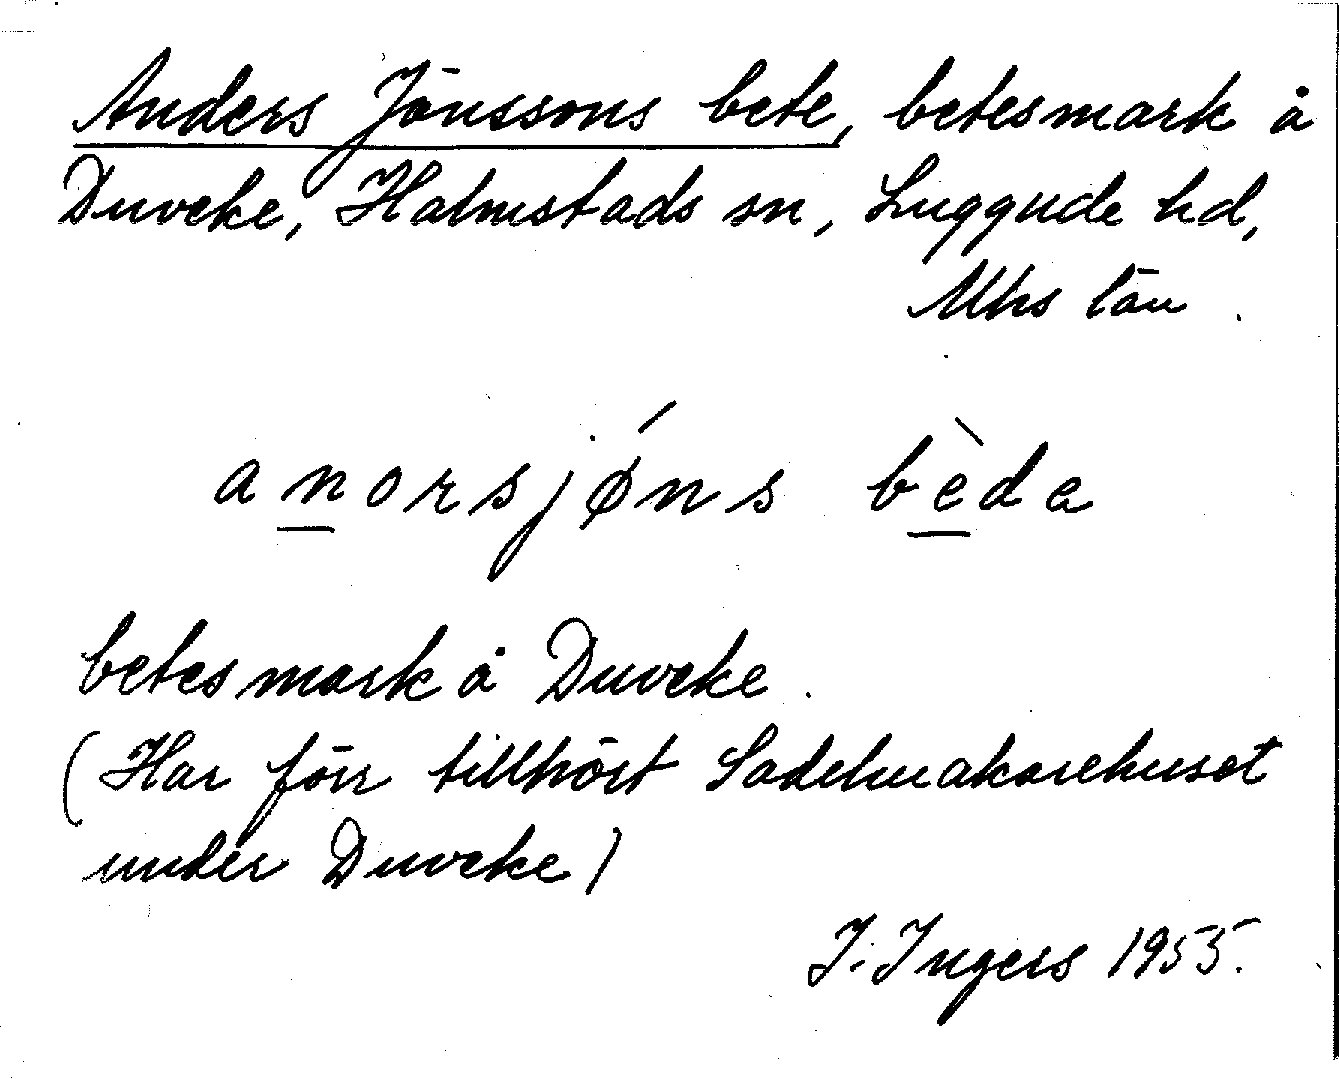 Anders Jönssons bete, betesmark å
Duveke, Halmstads sn, Luggude hd,
Mhs län.
anorsjǿns bèda
betesmark å Duveke.
(Har förr tillhört Sadelmakarehuset
under Duveke)
I. Ingers 1955.